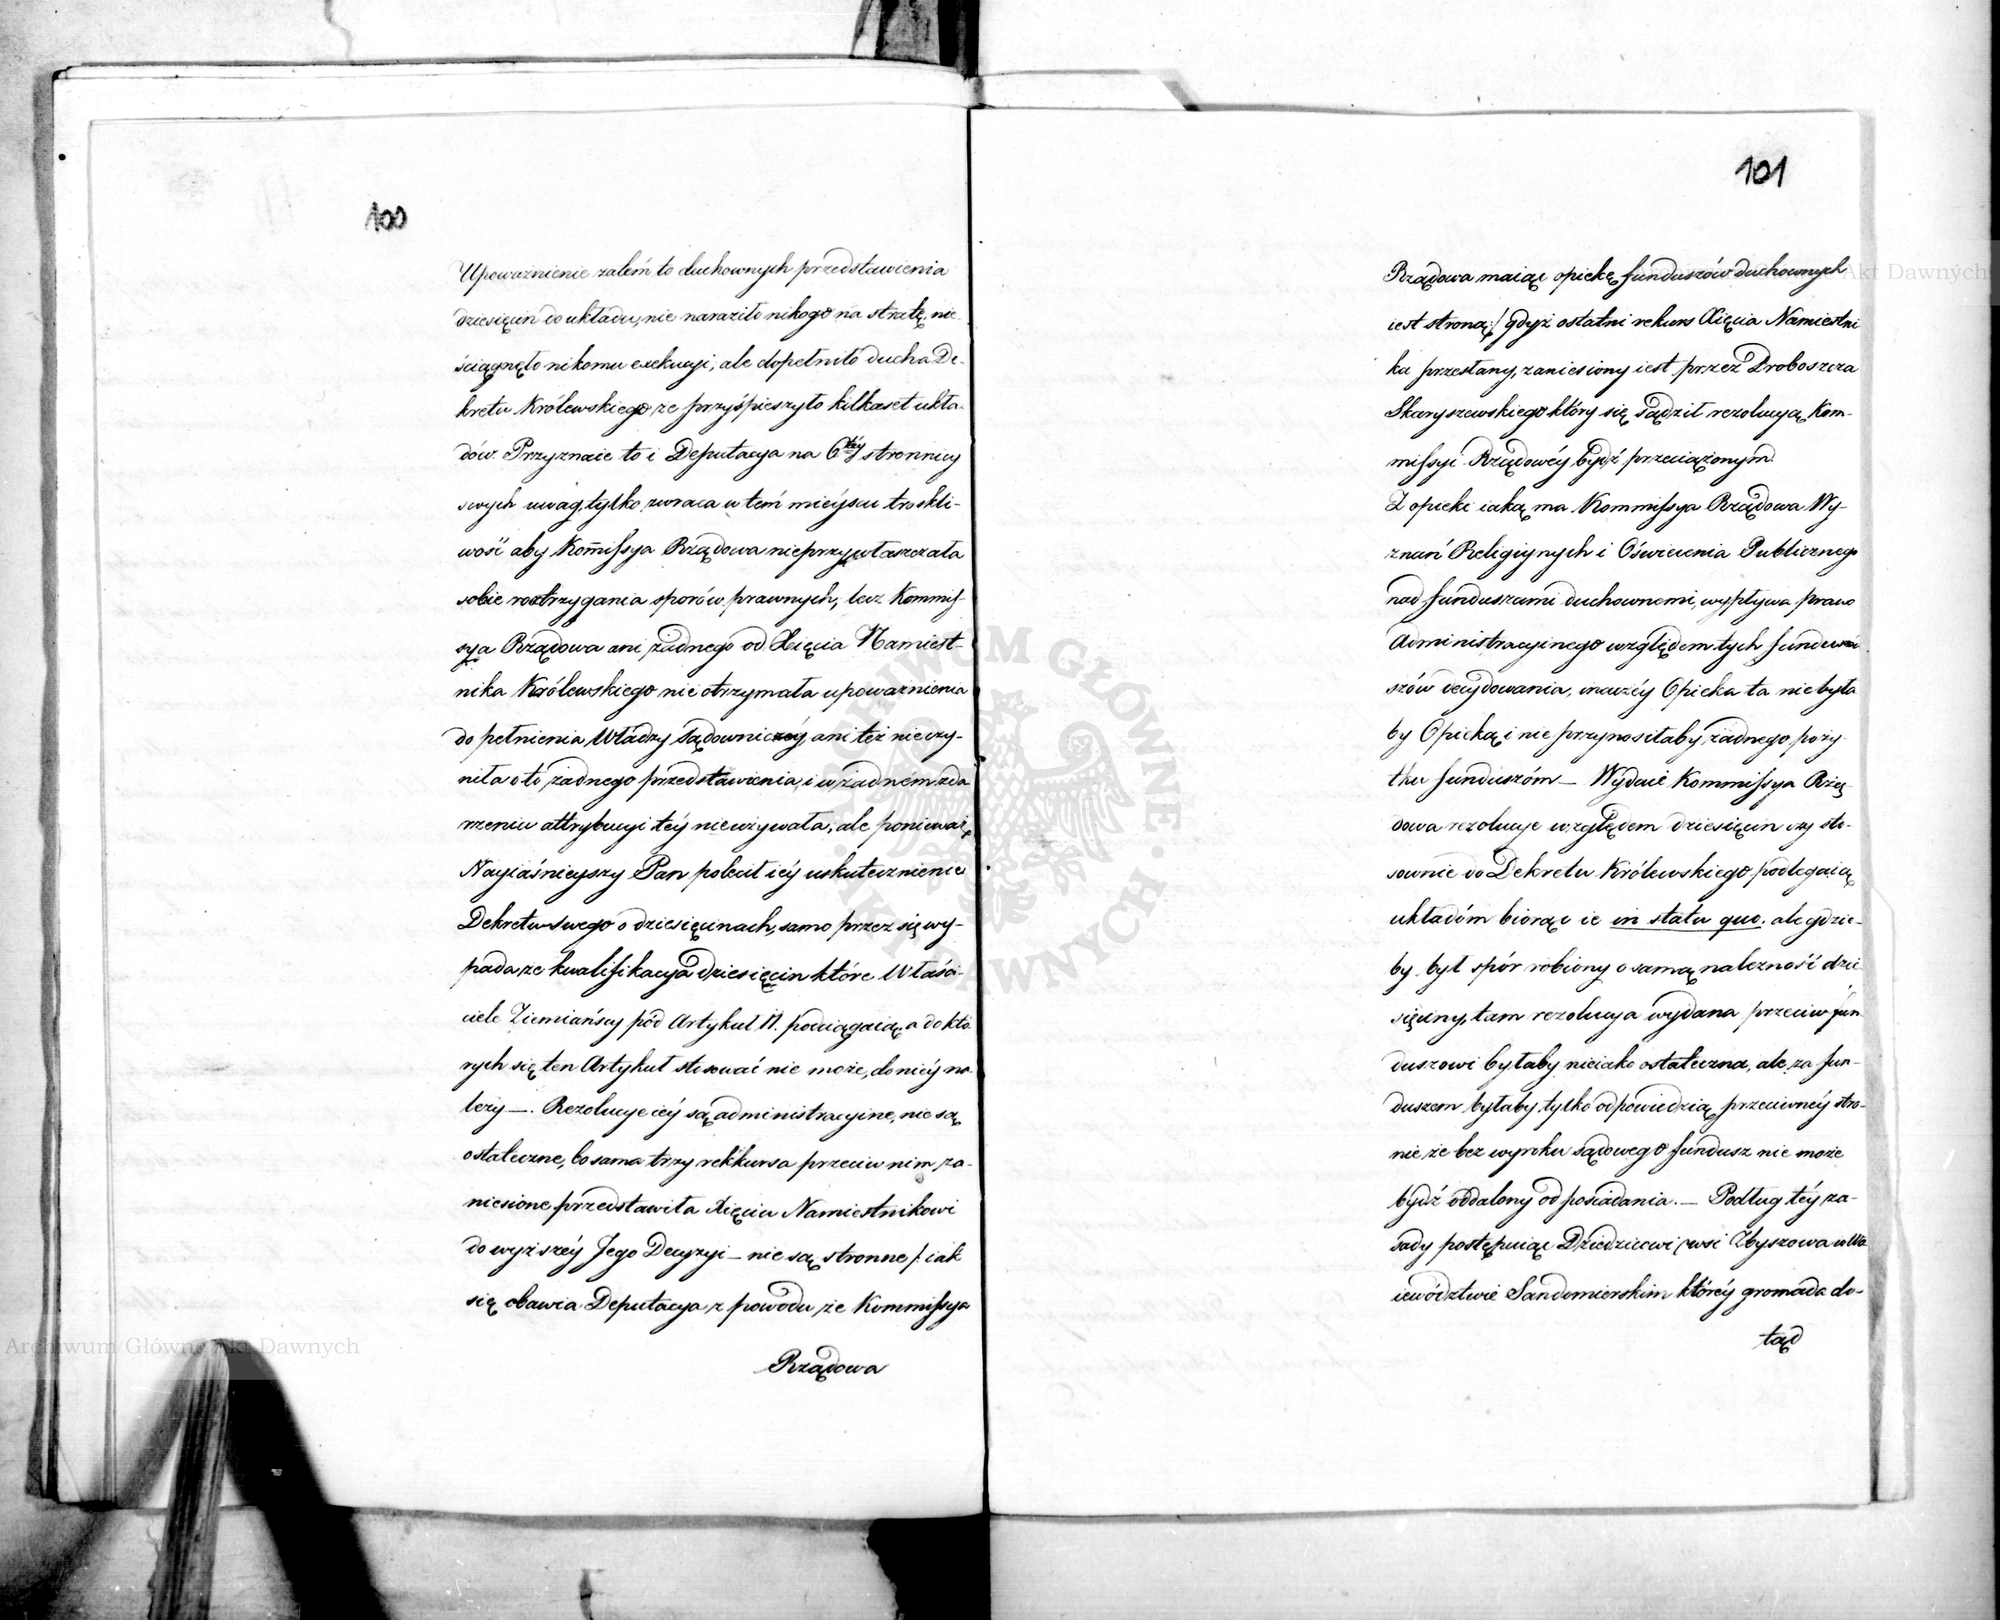 100
Upoważnienie zatém to duchownych przedstawienia
dziesięcin do układu, nie naraziło nikogo na stratę, nie
ściągnęło nikomu exekucyi, ale dopełniło ducha De-
kretu Królewskiego, że przyśpieszyło kilkaset ukła-
dów. Przyznaie to i Deputacya na 6téy stronnicy
swych uwag, tylko zwraca w tém mieyscu troskli-
wość aby Kom̄issya Rządowa nieprzywłaszczała
sobie roztrzygania sporów prawnych, lecz Kommis-
sya Rządowa ani żadnego od Xięcia Namiest-
nika Królewskiego nie otrzymała upoważnienia
do pełnienia Władzy sądowniczéy, ani też nieczy-
niła o to żadnego przedstawienia, i w żadném zda
rzeniu attrybucyi téy nieużywała, ale ponieważ
Nayiaśnieyszy Pan polecił iéy uskutecznienie
Dekretu Swego o dziesięcinach, samo przez się wy-
pada, że kwalifikacya dziesięcin które Właści-
ciele Ziemiańscy pod Artykuł II. pociągaią, a do któ
rych się ten Artykuł stosować nie może, do niéy na-
leży —. Rezolucye iéy są administracyine, nie są
ostateczne, bo sama trzy rekkursa przeciw nim za-
niesione przedstawiła Xięciu Namiestnikowi
do wyższéy Jego Decyzyi — nie są stronne /: iak
się obawia Deputacya z powodu że Kommissya
Rządowa
101
Rządowa maiąc opiekę funduszów duchownych
iest stroną:/ gdyż ostatni rekurs Xięcia Namiestni
ka przesłany, zaniesiony iest przez Proboszcza
Skaryszewskiego który się sądził rezolucyą Kom-
missyi Rządowéy bydź przeciążonym.
Z opieki iaką ma Kommissya Rządowa Wy-
znań Religiynych i Oświecenia Publicznego
nad funduszami duchownemi, wypływa prawo
Administracyinego względem tych fundu
szów decydowania, inaczéy Opieka ta nie była
by Opieką i nie przynosiłaby żadnego poży-
tku funduszóm — Wydaie Kommissya Rzą-
dowa rezolucye względem dziesięcin czy sto-
sownie do Dekretu Królewskiego podlegaią
układóm biorąc ie in statu quo. ale gdzie-
by był spór robiony o samą należność dzie
sięciny, tam rezolucya wydana przeciw fun
duszowi byłaby nieiako ostateczna, ale za fun-
duszem byłaby tylko odpowiedzią przeciwnéy stro-
nie że bez wyroku sądowego fundusz nie może
bydź oddalony od posiadania. — Podług téy za-
sady postępuiąc Dziedzicowi wsi Zbyszowa w Wo
iewództwie Sandomierskim któréy gromada do-
tąd